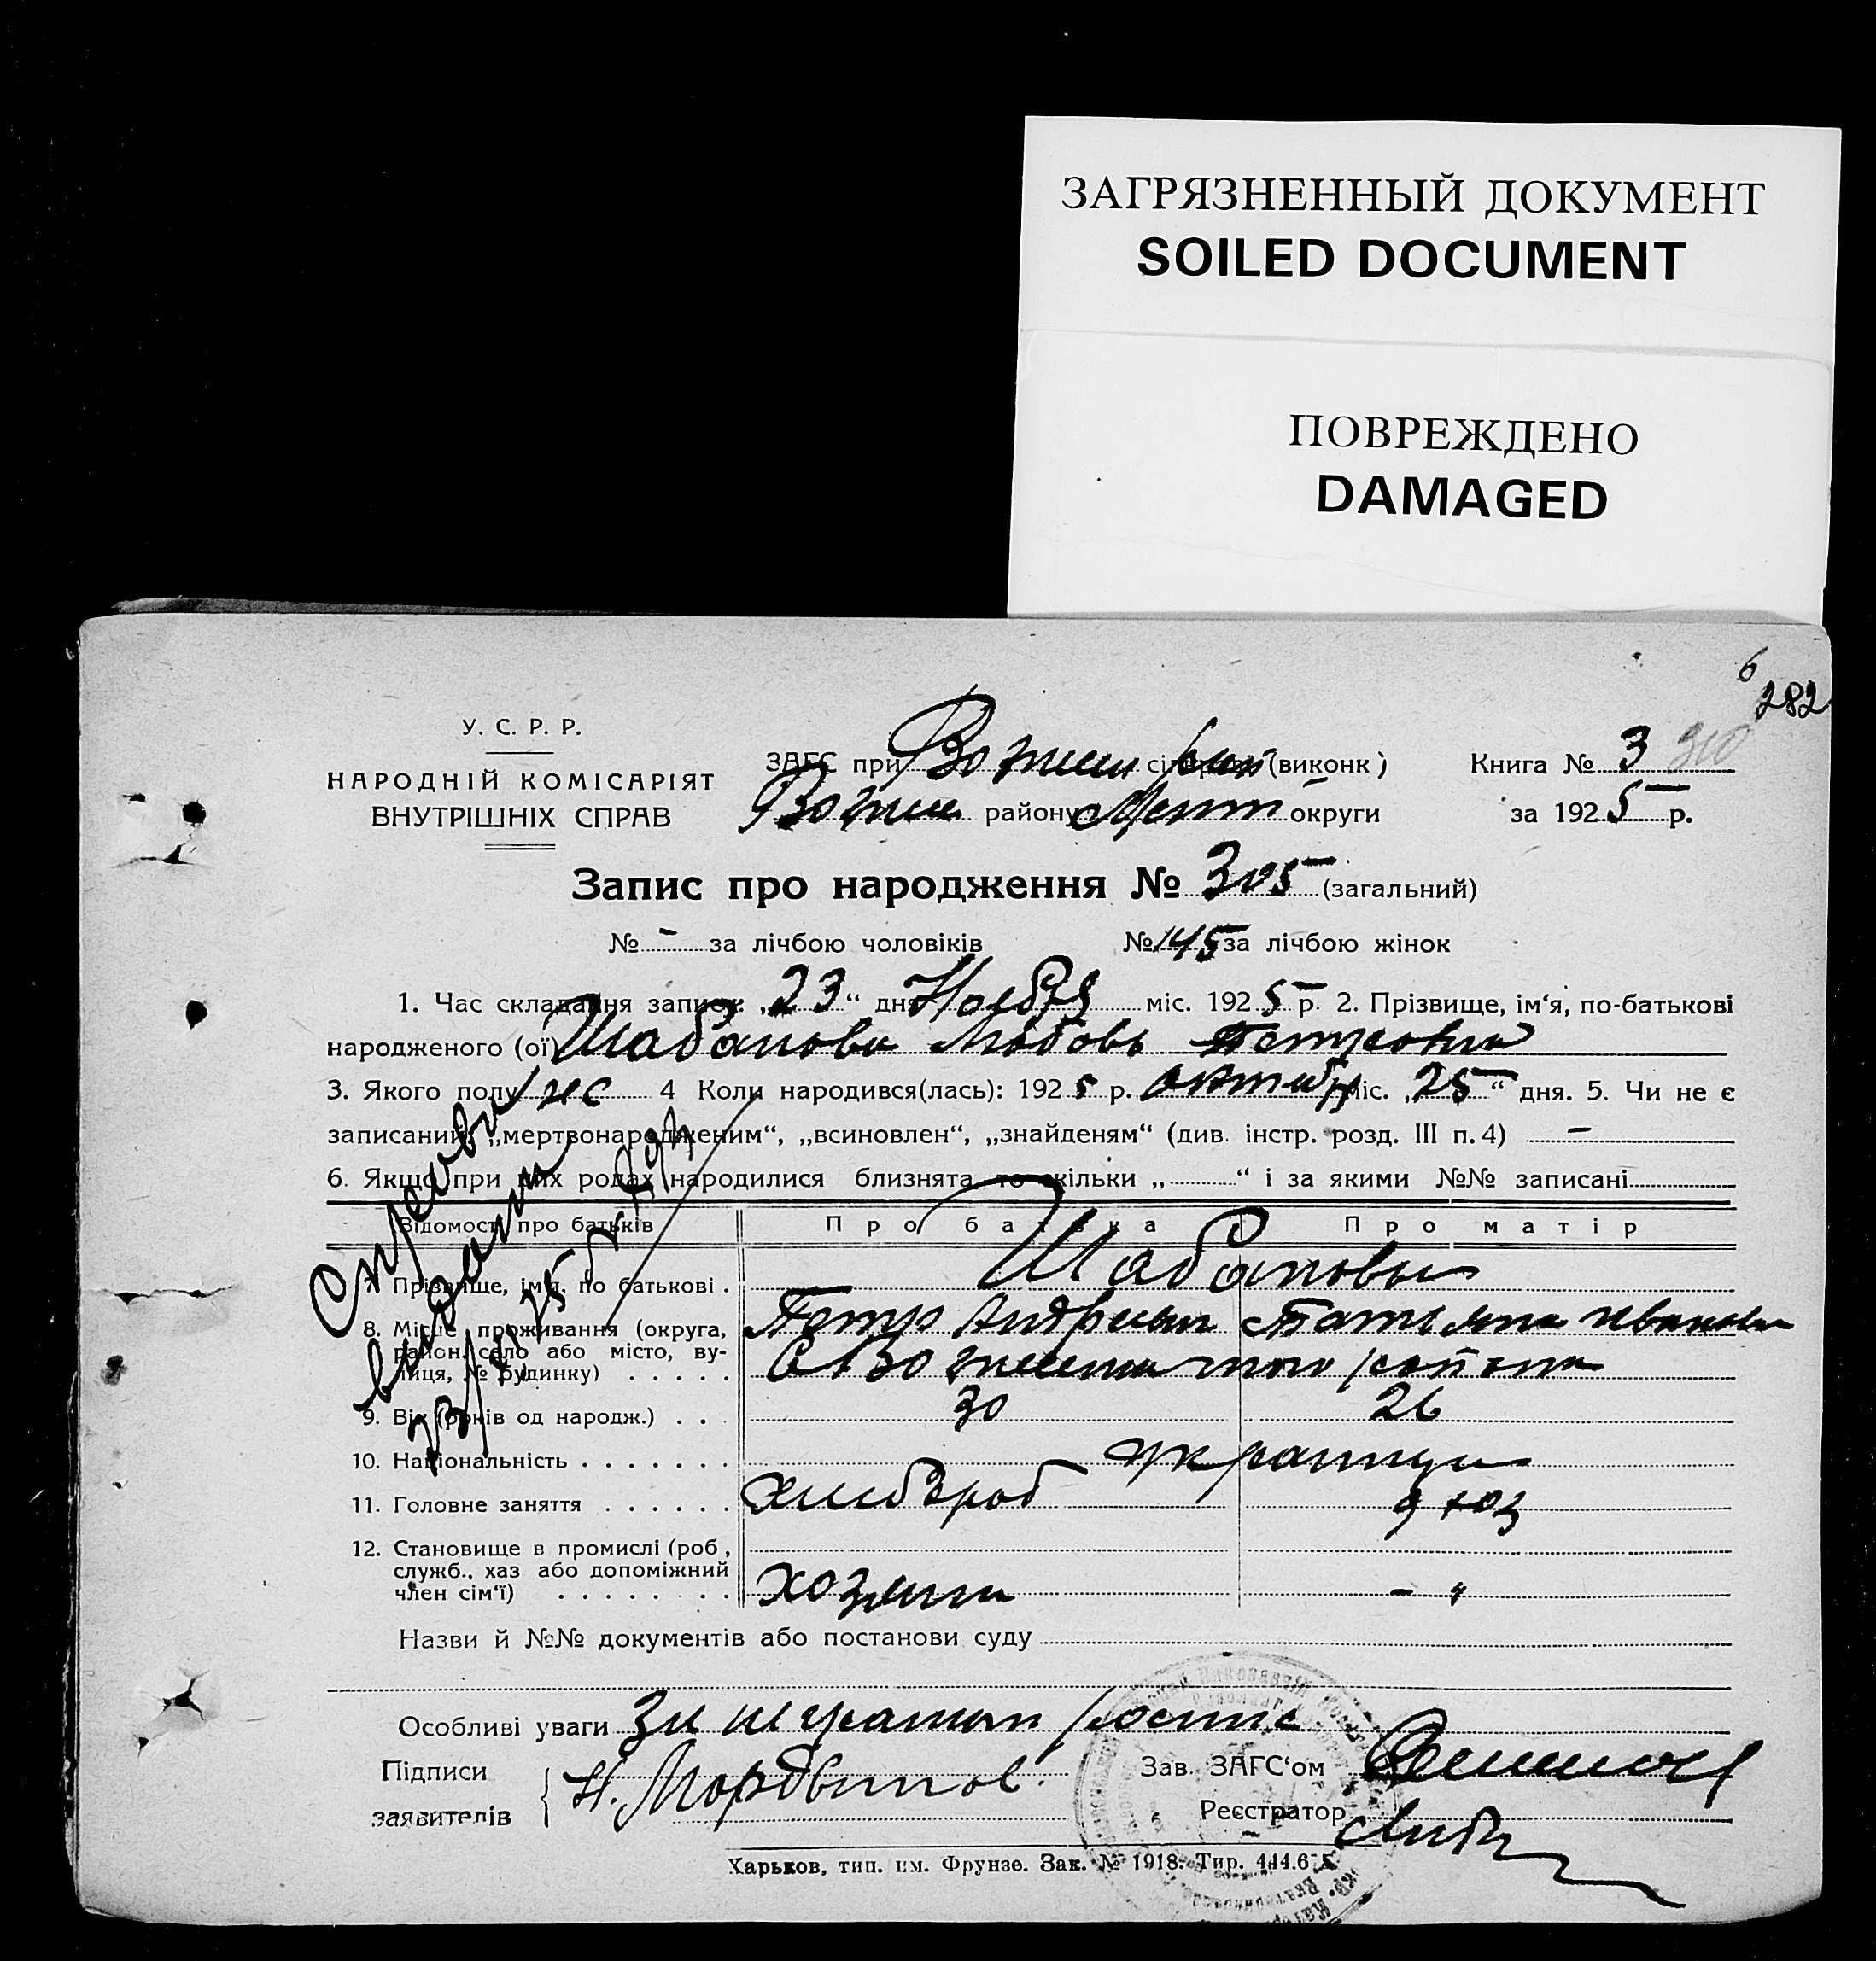 ЗАГРЯЗНЕННЫЙ ДОКУМЕНТ
SOILED DOCUMENT
ПОВРЕЖДЕНО
DAMAGED
6
282
У. С. Р. Р.
НАРОДНІЙ КОМІСАРІЯТ
ВНУТРІШНІХ СПРАВ
ЗАГС при (виконк)
району округи
Книга № 3 310
за 1925 р.
Запис про народження № 305 (загальний)
№ - за лічбою чоловіків № 145 за лічбою жінок
1. Час складання запису: „23“ дня Ноября міс. 1925 р. 2. Прізвище, ім‘я, по-батькові
народженого (ої) Шабанова Любовь Петровна
3. Якого полу жс 4 Коли народився(лась): 1925 р. октябр міс. „25“ дня. 5. Чи не є
записаний: „мертвонародженим“, „всиновлен“, „знайденям“ (див. інстр. розд. III п. 4) —
6. Якщо при цих родах народилися близнята, то скільки „ “ і за якими №№ записані
Відомості про батьків Про батька Про матір
7. Прізвище, ім‘я, по батькові . Шабановы
Петр Андреевич Татьяна Иванова
8. Місце проживання (округа, район, село або місто, вулиця, № будинку) . . . . .
9. Вік (років од народж.) . . 30 26
10. Національність . . . . . . . украинцы
11. Головне заняття . . . . . . хлебороб д хоз
12. Становище в промислі (роб, служб., хаз або допоміжний член сім‘ї) . . . . . . . хозяин - "
Назви й №№ документів або постанови суду
Особливі уваги
Підписи
заявителів
Н. Мордвинов
Зав. ЗАГС‘ом
Реєстратор
Харьков, тип. им. Фрунзе. Зак. № 1918. Тир.